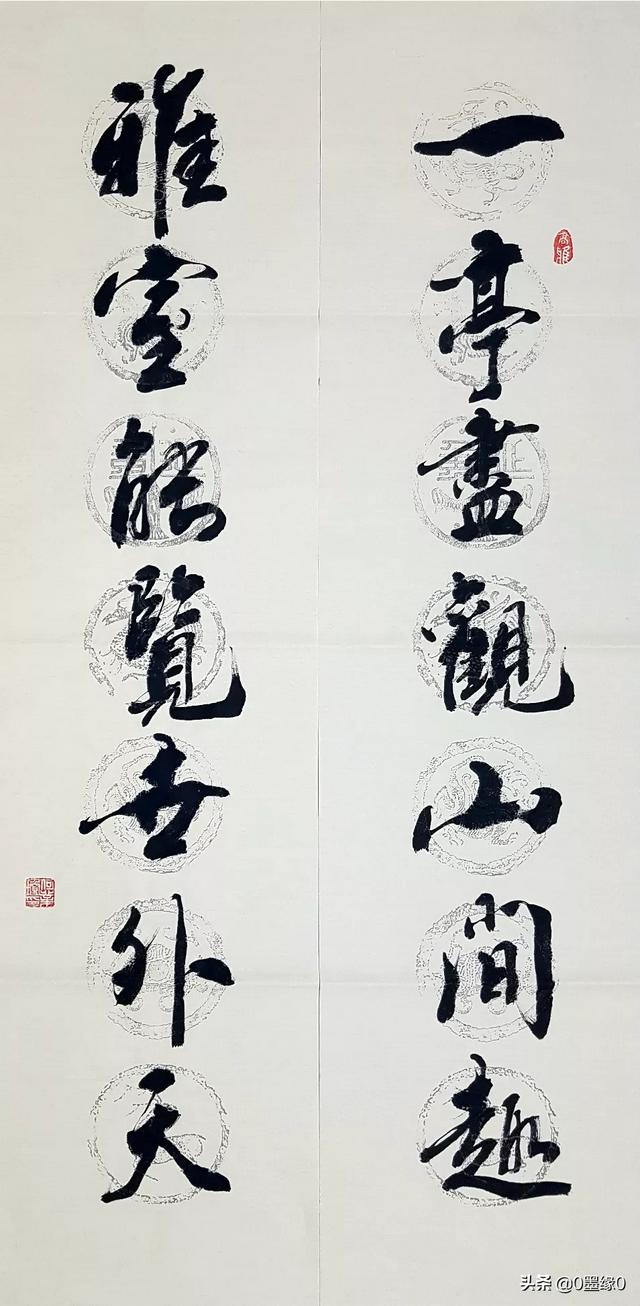 一亭盡觀山間趣
雅室能覽世外天
高雅
头条 @0墨缘0